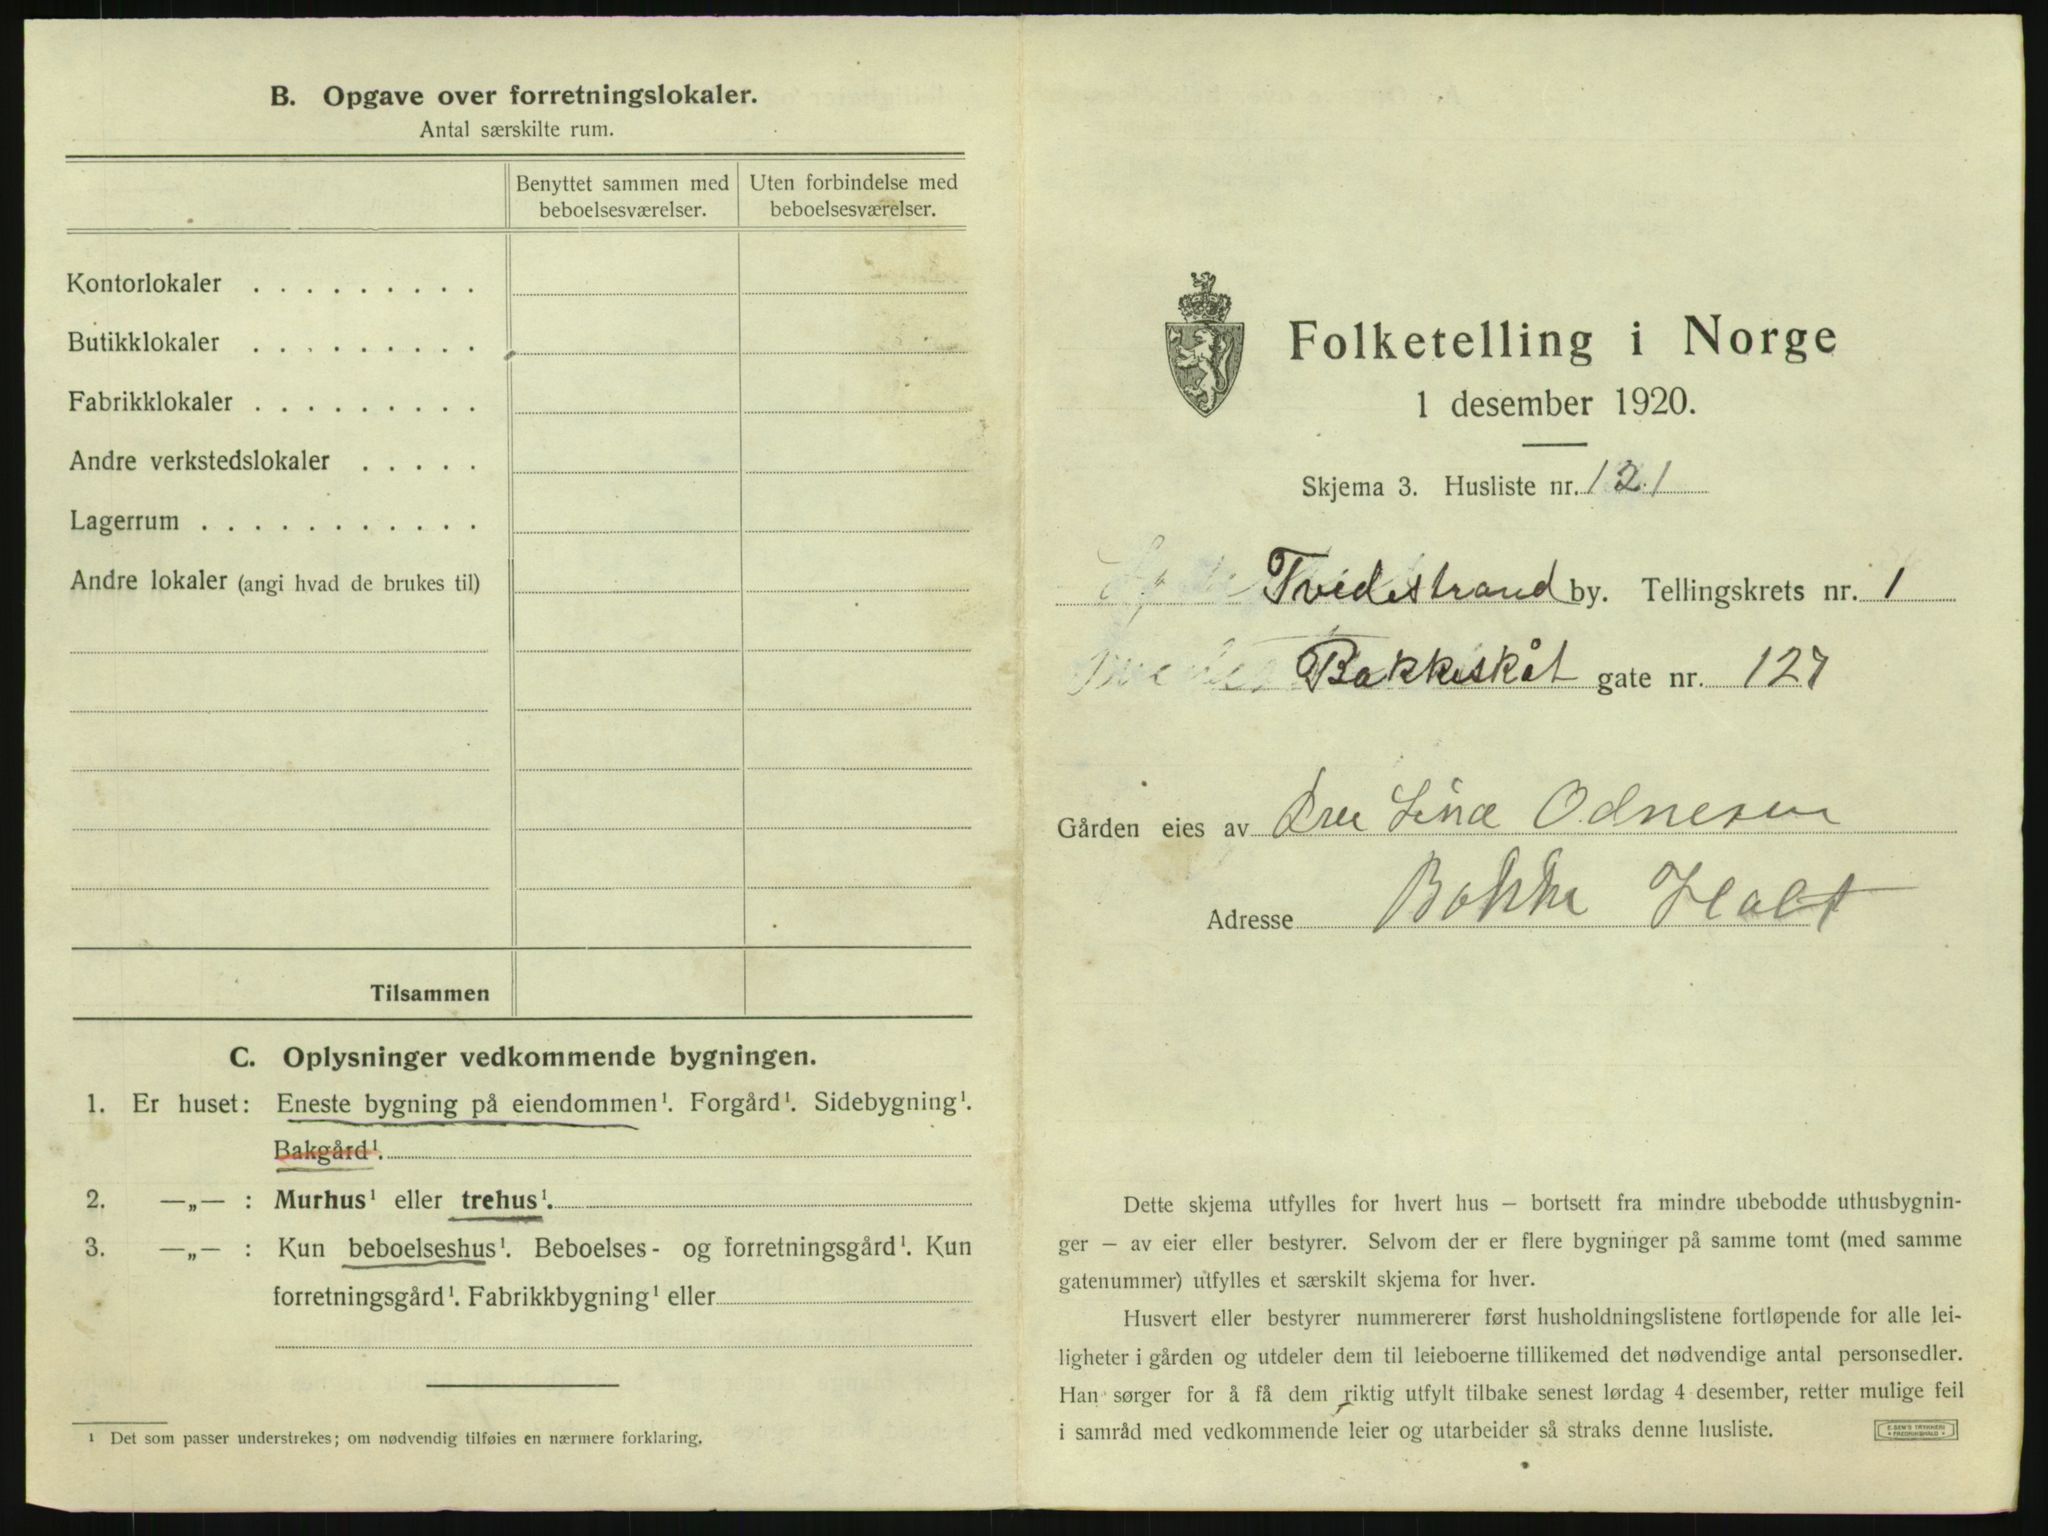 B. Opgave over forretningslokaler.
Antal særskilte rum.
Benyttet sammen med beboelsesværelser.
Uten forbindelse med beboelsesværelser.
Kontorlokaler . . . . . . . . .
Butikklokaler . . . . . . . . .
Fabrikklokaler . . . . . . . . .
Andre verkstedslokaler . . . . .
Lagerrum . . . . . . . . . . .
Andre lokaler (angi hvad de brukes til)
Tilsammen
C. Oplysninger vedkommende bygningen.
1. Er huset: Eneste bygning på eiendommen¹. Forgård¹. Sidebygning¹.
Bakgård¹.
2. —„— : Murhus¹ eller trehus¹.
3. —„— : Kun beboelseshus¹. Beboelses- og forretningsgård¹. Kun
forretningsgård¹. Fabrikkbygning¹ eller
¹ Det som passer understrekes; om nødvendig tilføies en nærmere forklaring.
Folketelling i Norge
1 desember 1920.
Skjema 3. Husliste nr. 121
Tvedestrand by. Tellingskrets nr. 1
Bakkeskåt gate nr. 127
Gården eies av Lina Odnesen
Adresse Bakke Holt
Dette skjema utfylles for hvert hus – bortsett fra mindre ubebodde uthusbygnin-
ger – av eier eller bestyrer. Selvom der er flere bygninger på samme tomt (med samme
gatenummer) utfylles et særskilt skjema for hver.
Husvert eller bestyrer nummererer først husholdningslistene fortløpende for alle lei-
ligheter i gården og utdeler dem til leieboerne tillikemed det nødvendige antal personsedler.
Han sørger for å få dem riktig utfylt tilbake senest lørdag 4 desember, retter mulige feil
i samråd med vedkommende leier og utarbeider så straks denne husliste.
E. SEM'S TRYKKERI
FREDRIKSHALD